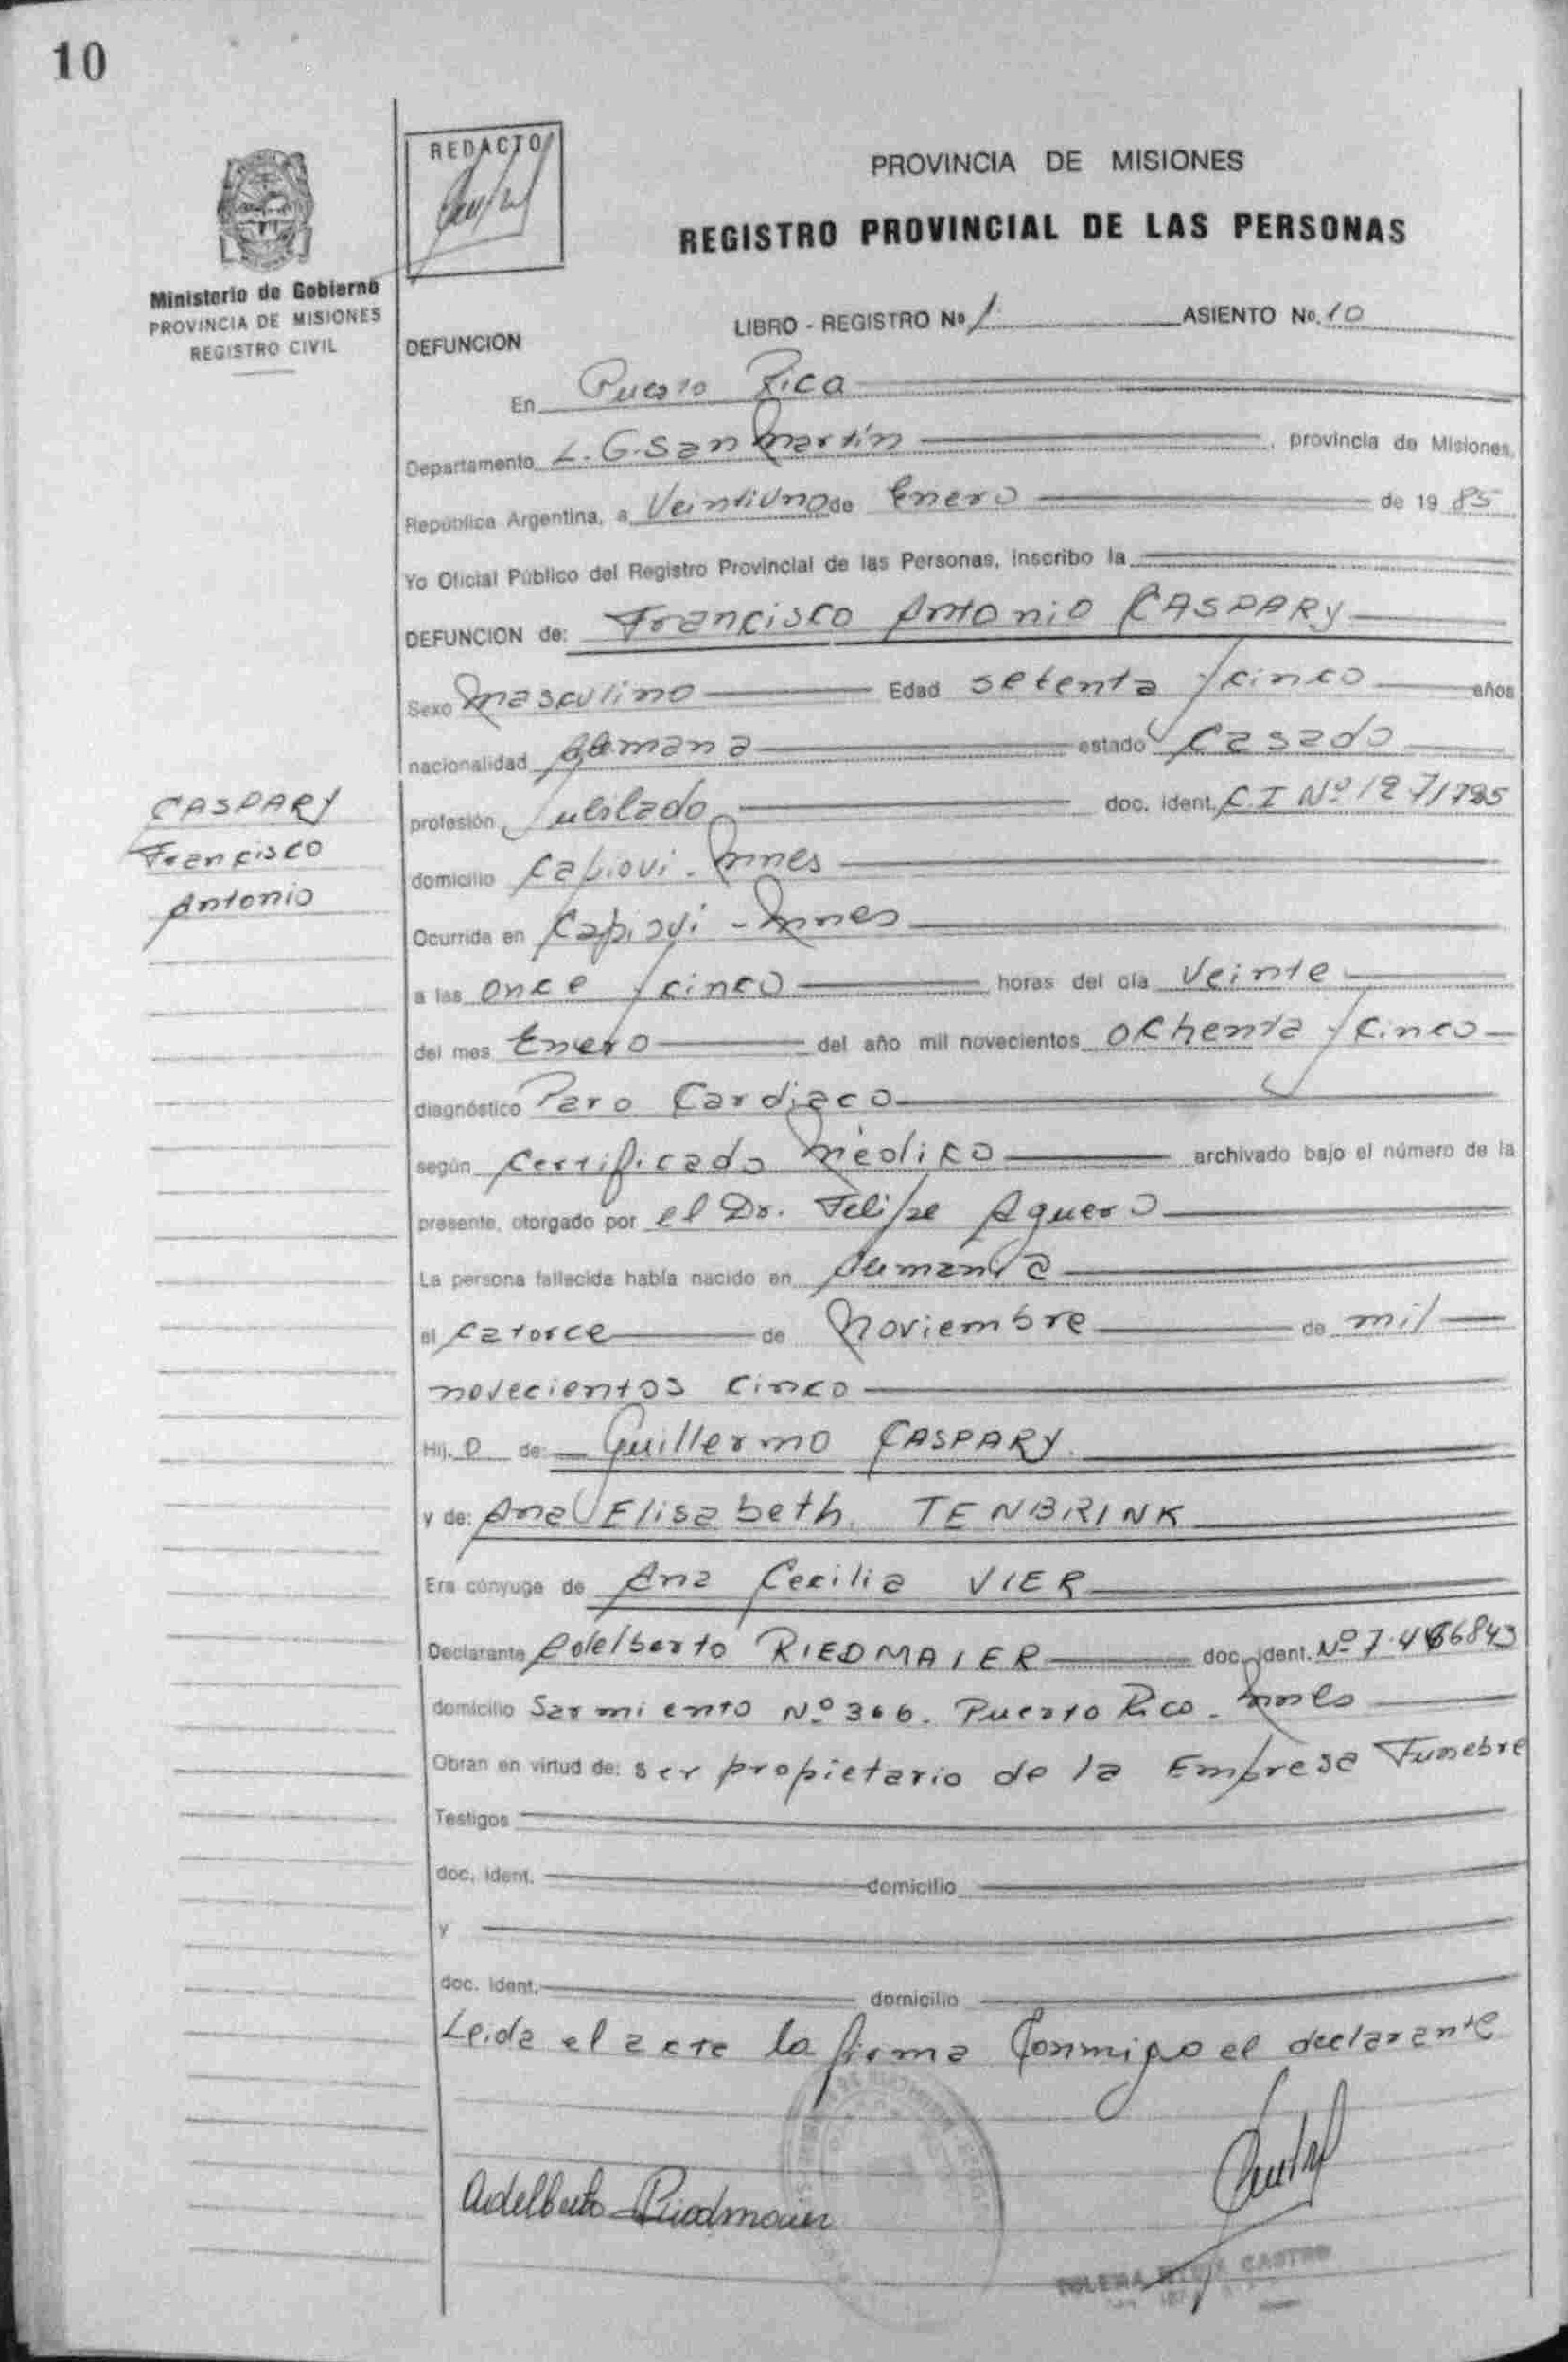 10
REDACTO
PROVINCIA DE MISIONES
REGISTRO PROVINCIAL DE LAS PERSONAS
Ministerio de Gobierno
PROVINCIA DE MISIONES
REGISTRO CIVIL
LIBRO - REGISTRO Nº 1 ASIENTO No. 10
DEFUNCION
En Puerto Rico
Departamento L. G. San Martín, provincia de Misiones,
República Argentina, a Veintiuno de Enero de 19 85
Yo Oficial Público del Registro Provincial de las Personas, inscribo la
DEFUNCION de: Francisco Antonio CASPARY
Sexo Masculino Edad setenta y cinco años
nacionalidad Alemana estado Casado
CASPARY
Francisco
Antonio
profesión Jubilado doc. ident. C.I Nº
domicilio Capiovi - Mnes
Ocurrida en Capiovi - Mnes
a las once y cinco horas del día Veinte
del mes Enero del año mil novecientos Ochenta y Cinco
diagnóstico Paro Cardiaco
según Certificado Médico archivado bajo el número de la
presente, otorgado por el Dr. Felipe Aguero
La persona fallecida había nacido en Alemania
el Catorce de Noviembre de mil
novecientos cinco
Hij. o de: Guillermo CASPARY.
y de: Ana Elisabeth TENBRINK
Era cónyuge de Ana Cecilia VIER
Declarante Adelberto RIEDMAIER doc. ident. Nº
domicilio Sarmiento Nº 366. Puerto Rico - Mnes
Obran en virtud de: ser propietario de la Empresa Funebre
Testigos
doc. ident. domicilio
y
doc. ident. domicilio
Leida el acta la firma Conmigo el declarante
Adelberto Riedmaier
CASTRO